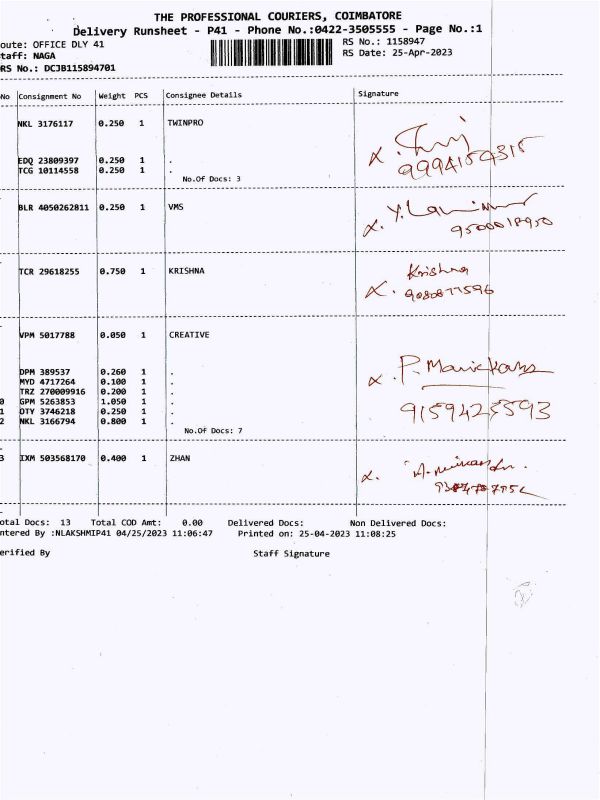 THE PROFESSIONAL COURIERS, COIMBATORE
Delivery Runsheet - P41 - Phone No.:0422-3505555 - Page No.:1
oute: OFFICE DLY 41 RS No.: 1158947
taff: NAGA RS Date: 25-Apr-2023
RS No.: DCJB115894701
No Consignment No Weight PCS Consignee Details Signature
NKL 3176117 0.250 1 TWINPRO
EDQ 23809397 0.250 1 .
TCG 10114558 0.250 1 .
9994154315
No.Of Docs: 3
BLR 4050262811 0.250 1 VMS
9500018950
TCR 29618255 0.750 1 KRISHNA Krishna
9080877596
VPM 5017788 0.050 1 CREATIVE
DPM 389537 0.260 1 .
MYD 4717264 0.100 1 .
TRZ 270009916 0.200 1 .
0 GPM 5263853 1.050 1 .
1 OTY 3746218 0.250 1 .
2 NKL 3166794 0.800 1 .
No.Of Docs: 7
3 IXM 503568170 0.400 1 ZHAN
otal Docs: 13 Total COD Amt: 0.00 Delivered Docs: Non Delivered Docs:
ntered By :NLAKSHMIP41 04/25/2023 11:06:47 Printed on: 25-04-2023 11:08:25
erified By Staff Signature